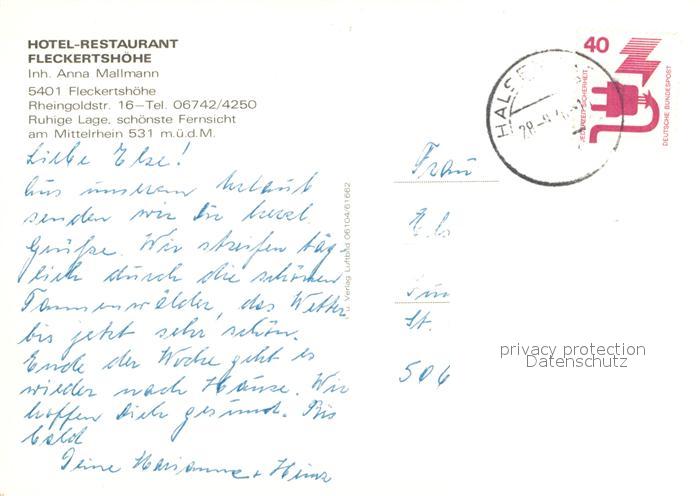 HOTEL-RESTAURANT
FLECKERTSHÖHE
Inh. Anna Mallmann
5401 Fleckertshöhe
Rheingoldstr. 16–Tel. 06742/4250
Ruhige Lage, schönste Fernsicht
am Mittelrhein 531 m.ü.d.M.
Liebe Else!
Aus unserem Urlaub
senden wir Dir herzl.
Grüße. Wir streifen täg-
lich durch die schönen
Tannenwälder, das Wetter
bis jetzt sehr schön.
Ende der Woche geht es
wieder nach Hause. Wir
hoffen Dich gesund. Bis
bald
Deine Marianne + Heinz
Verlag Luftbild 06104/61662
40
JEDERZEIT SICHERHEIT
DEUTSCHE BUNDESPOST
Frau
Els
St.
506
privacy protection
Datenschutz